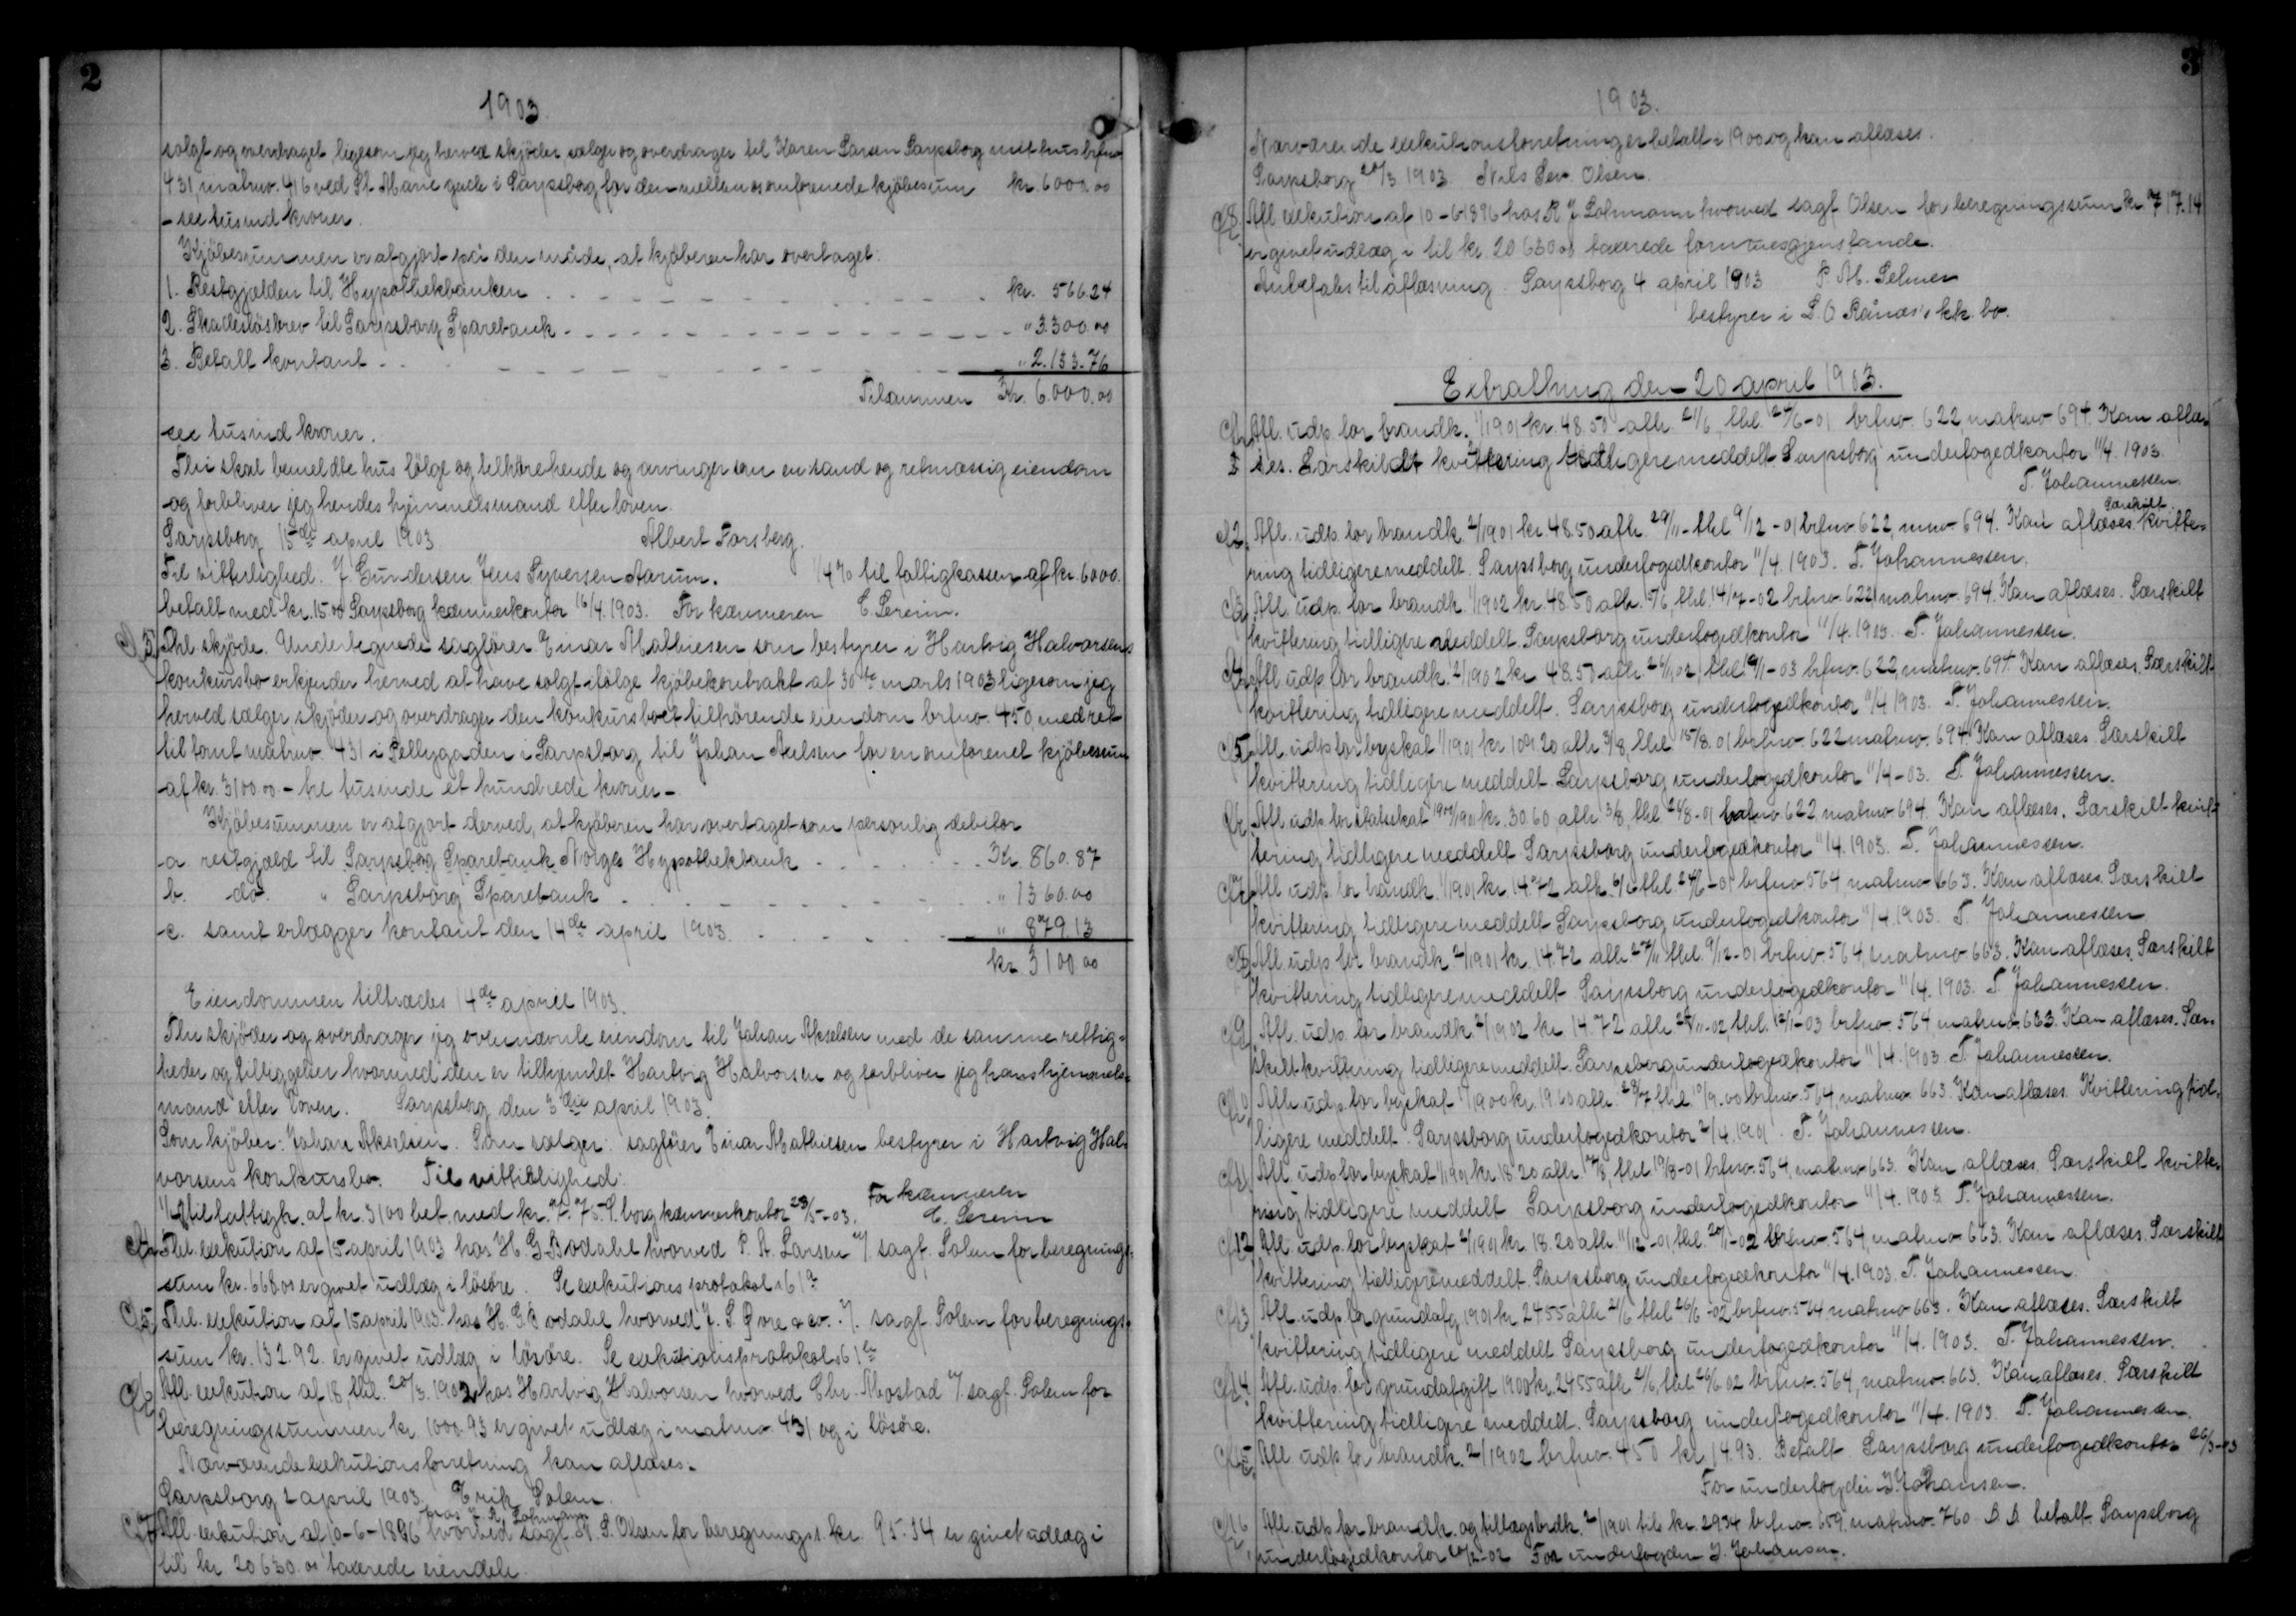 2
1903
solgt og overdraget, ligesom jeg herved skjøder sælger og overdrager til Karen Larsen Sarpsborg mit hus brfno
431, matrno. 416 ved St. Marie gade i Sarpsborg for den mellem os omforenede kjøbesum kr. 6000.00
- sex tusind kroner.
Kjøbesummen er afgjort på den måde, at kjøberen har overtaget:
1. Restgjælden til Hypothekbanken kr. 566.24
2. Skadesløsbrev til Sarpsborg Sparebank " 3.300.00
3. Betalt kontant " 2.133.76
Tilsammen Kr. 6.000.00
sex tusind kroner.
Thi skal bemeldte hus følge og tilhøre hende og arvinger som en sand og retmæssig eiendom
og forbliver jeg hendes hjemmelsmand efter loven.
Sarpsborg 15de april 1903 Albert Forsberg.
Til vitterlighed. J. Gundersen. Jens Syversen Aarum. 1/4 % til fattigkassen af kr. 6000.
betalt med kr. 15.00 Sarpsborg kæmnerkontor 16/4. 1903. For kæmneren E. Severin.
3. Thl. skjøde. Undertegnede sagfører Einar Mathiesen som bestyrer i Hartvig Halvorsens
konkursbo erkjender herved at have solgt ifølge kjøbekontrakt af 30te marts 1903 ligesom jeg
herved sælger, skjøder og overdrager den konkursboet tilhørende eiendom brfno. 450, med ret
til tomt matrno. 431 i Pellygaden i Sarpsborg til Johan Axelsen for en omforenet kjøbesum
af kr. 3100.00 - tre tusinde et hundrede kroner -
Kjøbesummen er afgjort derved, at kjøberen har overtaget som personlig debitor
a. restgjæld til Sarpsborg Sparebank Norges Hypothekbank Kr. 860.87
b. do. " Sarpsborg Sparebank " 1360.00
c. samt erlægger kontant den 14de april 1903 " 879.13
kr. 3100.00
Eiendommen tiltrædes 14de april 1903.
Thi skjøder og overdrager jeg ovennævnte eiendom til Johan Akselsen med de samme rettig=
heder og tilliggelser hvormed den er tilhjemlet Hartvig Halvorsen og forbliver jeg hans hjemmels=
mand efter loven. Sarpsborg den 3die april 1903.
Som kjøber: Johan Akselsen. Som sælger: sagfører Einar Mathiesen bestyrer i Hartvig Hal=
vorsens konkursbo. Til vitterlighed:
1/4 % til fattigk. af kr. 3100 bet. med kr. 7.75. S.borg kæmnerkontor 23/5-03. For kæmneren
E. Severin
4. Thl. exekution af 15 april 1903 hos H. G. Bodahl hvorved P. A. Larsen v/ sagf. Solem for beregnings=
sum kr. 668.00 er givet udlæg i løsøre. Se exekutions protokol s 61 a
5. Thl. exekution af 15 april 1903. hos H. G. Bodahl hvorved J. S. Gore & co. v/ sagf. Solem for beregnings=
sum kr. 132.92. er givet udlæg i løsøre. Se exekutionsprotokol s 61
6. Afl. exekution af 18, thl. 20/3. 1902 hos Hartvig Halvorsen hvorved Chr. Mostad v/ sagf. Solem for
beregningssummen kr. 1000.93 er givet udlæg i matrno. 431 og i løsøre.
Nærværende exekutionsforretning kan aflæses.
Sarpsborg 2 april 1903. Erik Solem.
hos J. R. Lohmann
7. Afl. exekution af 10-6-1896 hvorved sagf. N. S. Olsen for beregningss. kr. 95.34 er givet udlæg i
til kr 20630.00 taxerede eiendele.
3
1903.
Nærværende exekutionsforretning er betalt i 1900 og kan aflæses.
Sarpsborg 20/3 1903 Nils Sev. Olsen.
8. Afl. exekution af 10-6 1896 hos R. J. Lohmann hvorved sagf. Olsen for beregningssum kr. 717.14
er givet udlæg i til kr. 20630.00 taxerede formuesgjenstande.
Anbefales til aflæsning. Sarpsborg 4 april 1903 P. M. Selmer
bestyrer i L. O. Rånæs's kk. bo.
Extrathing den 20 april 1903.
1. Afl. udp. for brandk. 1/1901 kr. 48.50 afh. 21/6, thl. 24/6-01 brfno. 622 matrno 694. Kan aflæ=
ses. Særskildt kvittering tidligere meddelt Sarpsborg underfogedkontor 11/4. 1903.
T. Johannessen.
Særskilt
2. Afl. udp. for brandk. 2/1901 kr. 48.50 afh. 29/11 - thl. 9/12-01 brfno 622, mno. 694. Kan aflæses. kvitte=
ring tidligere meddelt. Sarpsborg underfogedkontor 11/4. 1903. T. Johannessen.
3. Afl. udp. for brandk. 1/1902 kr. 48.50 afh. 5/6 thl. 14/7-02 brfno. 622 matrno. 694. Kan aflæses. Særskilt
kvittering tidligere meddelt. Sarpsborg underfogedkontor 11/4. 1903. T. Johannessen.
4. Afl. udp. for brandk. 2/1902 kr 48.50 afh. 26/11 02, thl. 19/1-03 brfno. 622, matrno. 694. Kan aflæses. Særskilt
kvittering tidligere meddelt. Sarpsborg underfogedkontor 11/4 1903. T. Johannessen.
5. Afl. udp. for byskat 1/1901 kr. 109.20 afh 3/8, thl 15/8.01 brfno. 622 matrno. 694. Kan aflæses. Særskilt
kvittering tidligere meddelt Sarpsborg underfogedkontor 11/4-03. T. Johannessen.
6. Afl. udp. for statsskat 1900/1901 kr. 30.60 afh. 3/8, thl 26/8-01 brfno 622, matrno 694. Kan aflæses. Særskilt kvit=
tering tidligere meddelt Sarpsborg underfogedkontor 11/4. 1903. T. Johannessen.
7. Afl. udp. for brandk. 1/1901 kr. 14.72 afh. thl 24/6-01 brfno 564 matrno 663. Kan aflæses. Særskilt
kvittering tidligere meddelt Sarpsborg underfogedkontor 11/4. 1903. T. Johannessen
8. Afl. udp. for brandk. 2/1901 kr. 14.72 afh 27/11 thl. 9/12-01 brfno. 564, matrno 663. Kan aflæses. Særskilt
kvittering tidligere meddelt Sarpsborg underfogedkontor 11/4. 1903. T. Johannessen.
9. Afl. udp. for brandk. 2/1902 kr. 14.72 afh. 28/11-02, thl. 12/1-03 brfno. 564 matrno. 663. Kan aflæses. Sær=
skilt kvittering tidligere meddelt. Sarpsborg underfogedkontor 11/4. 1903. T. Johannessen.
10. Afl. udp. for byskat 1/1900 kr. 19.60 afh. 28/7 thl 10/9.00 brfno. 564, matrno. 663. Kan aflæses. Kvittering tid=
ligere meddelt. Sarpsborg underfogedkontor 2/4. 1901. T. Johannessen.
11. Afl. udp. for byskat 1/1901 kr. 18.20 afh. 7/8, thl 19/8-01 brfno. 564, matrno. 663. Kan aflæses. Særskilt kvitte=
ring tidligere meddelt Sarpsborg underfogedkontor 11/4. 1903. T. Johannessen.
12. Afl. udp. for byskat 2/1901 kr. 18.20 afh. 11/12-01, thl. 20/1-02 brfno. 564, matrno. 663. Kan aflæses. Særskilt
kvittering tidligere meddelt. Sarpsborg underfogedkontor 11/4. 1903. T. Johannessen.
13. Afl. udp. for grundafg. 1901 kr 24.55 afh 21/6 thl 26/6-02 brfno. 564 matrno 663. Kan aflæses. Særskilt
kvittering tidligere meddelt Sarpsborg underfogedkontor 11/4. 1903. T. Johannessen.
14. Afl. udp. for grundafgift 1900 kr. 24.55 afh 21/6, thl 26/6 02 brfno. 564, matrno. 663. Kan aflæses. Særskilt
kvittering tidligere meddelt. Sarpsborg underfogedkontor 11/4. 1903. T. Johannessen.
15. Afl. udp. for brandk. 2/1902 brfno. 450 kr. 14.93. Betalt. Sarpsborg underfogedkontor 26/3-03
For underfogden J. Johansen.
16. Afl. udp. for brandk. og tillægsbrdk. 2/1901 til kr. 29.34 brfno. 659. matrno. 760. D. D. betalt. Sarpsborg
underfogedkontor 20/2-02 For underfogden J. Johansen.